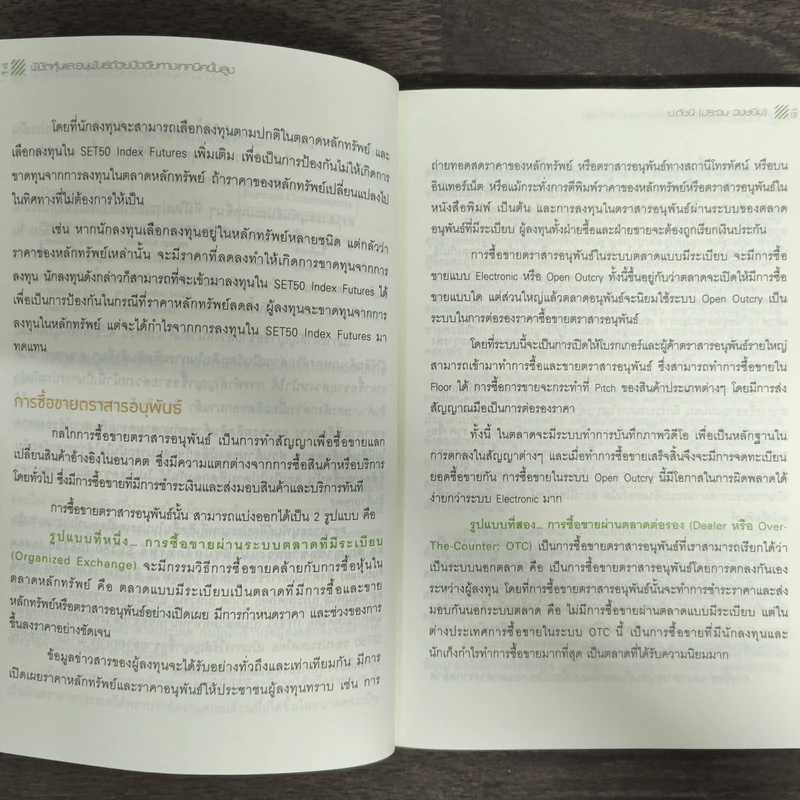 พิชิตหุ้นและอนุพันธ์ด้วยปัจจัยทางเทคนิคขั้นสูง
โดยที่นักลงทุนจะสามารถเลือกลงทุนตามปกติในตลาดหลักทรัพย์ และ
เลือกลงทุนใน SET50 Index Futures เพิ่มเติม เพื่อเป็นการป้องกันไม่ให้เกิดการ
ขาดทุนจากการลงทุนในตลาดหลักทรัพย์ ถ้าราคาของหลักทรัพย์เปลี่ยนแปลงไป
ในทิศทางที่ไม่ต้องการให้เป็น
เช่น หากนักลงทุนเลือกลงทุนอยู่ในหลักทรัพย์หลายชนิด แต่กลัวว่า
ราคาของหลักทรัพย์เหล่านั้น จะมีราคาที่ลดลงทำให้เกิดการขาดทุนจากการ
ลงทุน นักลงทุนดังกล่าวก็สามารถที่จะเข้ามาลงทุนใน SET50 Index Futures ได้
เพื่อเป็นการป้องกันในกรณีที่ราคาหลักทรัพย์ลดลง ผู้ลงทุนจะขาดทุนจากการ
ลงทุนในหลักทรัพย์ แต่จะได้กำไรจากการลงทุนใน SET50 Index Futures มา
ทดแทน
การซื้อขายตราสารอนุพันธ์
กลไกการซื้อขายตราสารอนุพันธ์ เป็นการทำสัญญาเพื่อซื้อขายแลก
เปลี่ยนสินค้าอ้างอิงในอนาคต ซึ่งมีความแตกต่างจากการซื้อสินค้าหรือบริการ
โดยทั่วไป ซึ่งมีการซื้อขายที่มีการชำระเงินและส่งมอบสินค้าและบริการทันที
การซื้อขายตราสารอนุพันธ์นั้น สามารถแบ่งออกได้เป็น 2 รูปแบบ คือ
รูปแบบที่หนึ่ง... การซื้อขายผ่านระบบตลาดที่มีระเบียบ
(Organized Exchange) จะมีกรรมวิธีการซื้อขายคล้ายกับการซื้อหุ้นใน
ตลาดหลักทรัพย์ คือ ตลาดแบบมีระเบียบเป็นตลาดที่มีการซื้อและขาย
หลักทรัพย์หรือตราสารอนุพันธ์อย่างเปิดเผย มีการกำหนดราคา และช่วงของการ
ขึ้นลงราคาอย่างชัดเจน
ข้อมูลข่าวสารของผู้ลงทุนจะได้รับอย่างทั่วถึงและเท่าเทียมกัน มีการ
เปิดเผยราคาหลักทรัพย์และราคาอนุพันธ์ให้ประชาชนผู้ลงทุนทราบ เช่น การ
ป.ดัชนี (ประจบ วงษนิ่ม)
ถ่ายทอดสดราคาของหลักทรัพย์ หรือตราสารอนุพันธ์ทางสถานีโทรทัศน์ หรือบน
อินเทอร์เน็ต หรือแม้กระทั่งการตีพิมพ์ราคาของหลักทรัพย์หรือตราสารอนุพันธ์ใน
หนังสือพิมพ์ เป็นต้น และการลงทุนในตราสารอนุพันธ์ผ่านระบบของตลาด
อนุพันธ์ที่มีระเบียบ ผู้ลงทุนทั้งฝ่ายซื้อและฝ่ายขายจะต้องถูกเรียกเงินประกัน
การซื้อขายตราสารอนุพันธ์ในระบบตลาดแบบมีระเบียบ จะมีการซื้อ
ขายแบบ Electronic หรือ Open Outcry ทั้งนี้ขึ้นอยู่กับว่าตลาดจะเปิดให้มีการซื้อ
ขายแบบใด แต่ส่วนใหญ่แล้วตลาดอนุพันธ์จะนิยมใช้ระบบ Open Outcry เป็น
ระบบในการต่อรองราคาซื้อขายตราสารอนุพันธ์
โดยที่ระบบนี้จะเป็นการเปิดให้โบรกเกอร์และผู้ค้าตราสารอนุพันธ์รายใหญ่
สามารถเข้ามาทำการซื้อและขายตราสารอนุพันธ์ ซึ่งสามารถทำการซื้อขายใน
Floor ได้ การซื้อการขายจะกระทำที่ Pitch ของสินค้าประเภทต่างๆ โดยมีการส่ง
สัญญาณมือเป็นการต่อรองราคา
ทั้งนี้ ในตลาดจะมีระบบทำการบันทึกภาพวิดีโอ เพื่อเป็นหลักฐานใน
การตกลงในสัญญาต่างๆ และเมื่อทำการซื้อขายเสร็จสิ้นจึงจะมีการจดทะเบียน
ยอดซื้อขายกัน การซื้อขายในระบบ Open Outcry นี้มีโอกาสในการผิดพลาดได้
ง่ายกว่าระบบ Electronic มาก
รูปแบบที่สอง... การซื้อขายผ่านตลาดต่อรอง (Dealer หรือ Over-
The-Counter: OTC) เป็นการซื้อขายตราสารอนุพันธ์ที่เราสามารถเรียกได้ว่า
เป็นระบบนอกตลาด คือ เป็นการซื้อขายตราสารอนุพันธ์โดยการตกลงกันเอง
ระหว่างผู้ลงทุน โดยที่การซื้อขายตราสารอนุพันธ์นั้นจะทำการชำระราคาและส่ง
มอบกันนอกระบบตลาด คือ ไม่มีการซื้อขายผ่านตลาดแบบมีระเบียบ แต่ใน
ต่างประเทศการซื้อขายในระบบ OTC นี้ เป็นการซื้อขายที่มีนักลงทุนและ
นักเก็งกำไรทำการซื้อขายมากที่สุด เป็นตลาดที่ได้รับความนิยมมาก